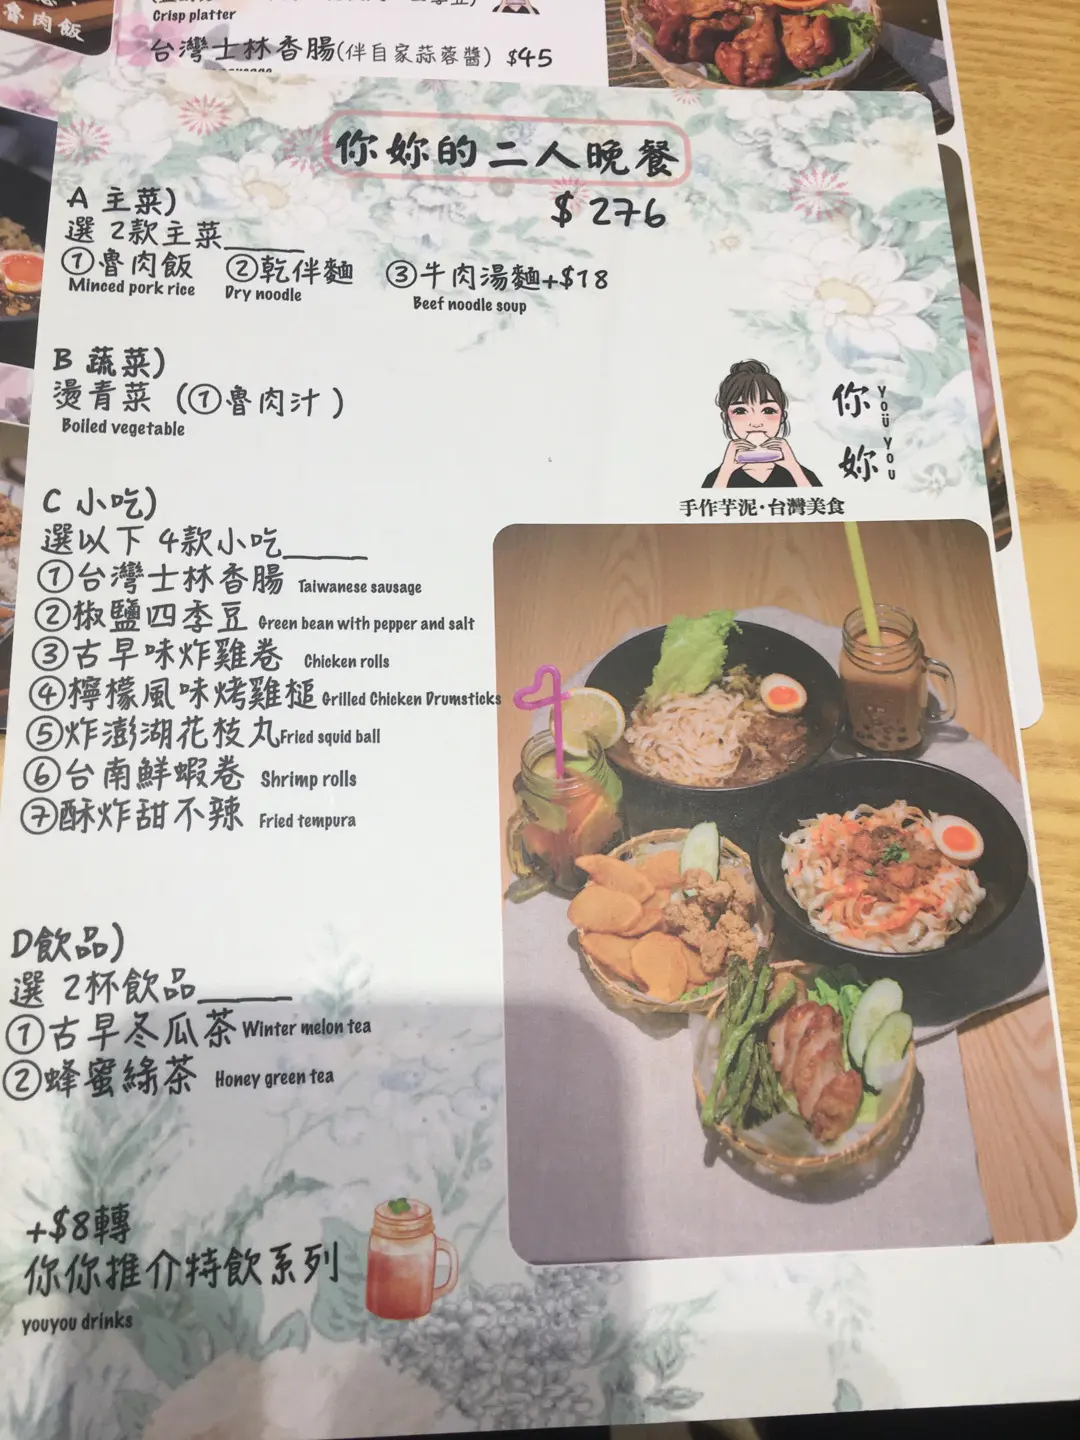 魯肉飯
Crisp platter
台灣士林香腸(伴自家蒜蓉醬) $45
你妳的二人晚餐
$276
A 主菜)
選 2款主菜____
①魯肉飯 ②乾伴麵 ③牛肉湯麵+$18
Minced pork rice Dry noodle Beef noodle soup
B 蔬菜)
燙青菜 (①魯肉汁)
Boiled vegetable
你妳
YOÜ YOU
手作芋泥·台灣美食
C 小吃)
選以下 4款小吃____
①台灣士林香腸 Taiwanese sausage
②椒鹽四季豆 Green bean with pepper and salt
③古早味炸雞卷 Chicken rolls
④檸檬風味烤雞槌 Grilled Chicken Drumsticks
⑤炸澎湖花枝丸 Fried squid ball
⑥台南鮮蝦卷 Shrimp rolls
⑦酥炸甜不辣 Fried tempura
D飲品)
選 2杯飲品____
①古早冬瓜茶 Winter melon tea
②蜂蜜綠茶 Honey green tea
+$8轉
你你推介特飲系列
youyou drinks